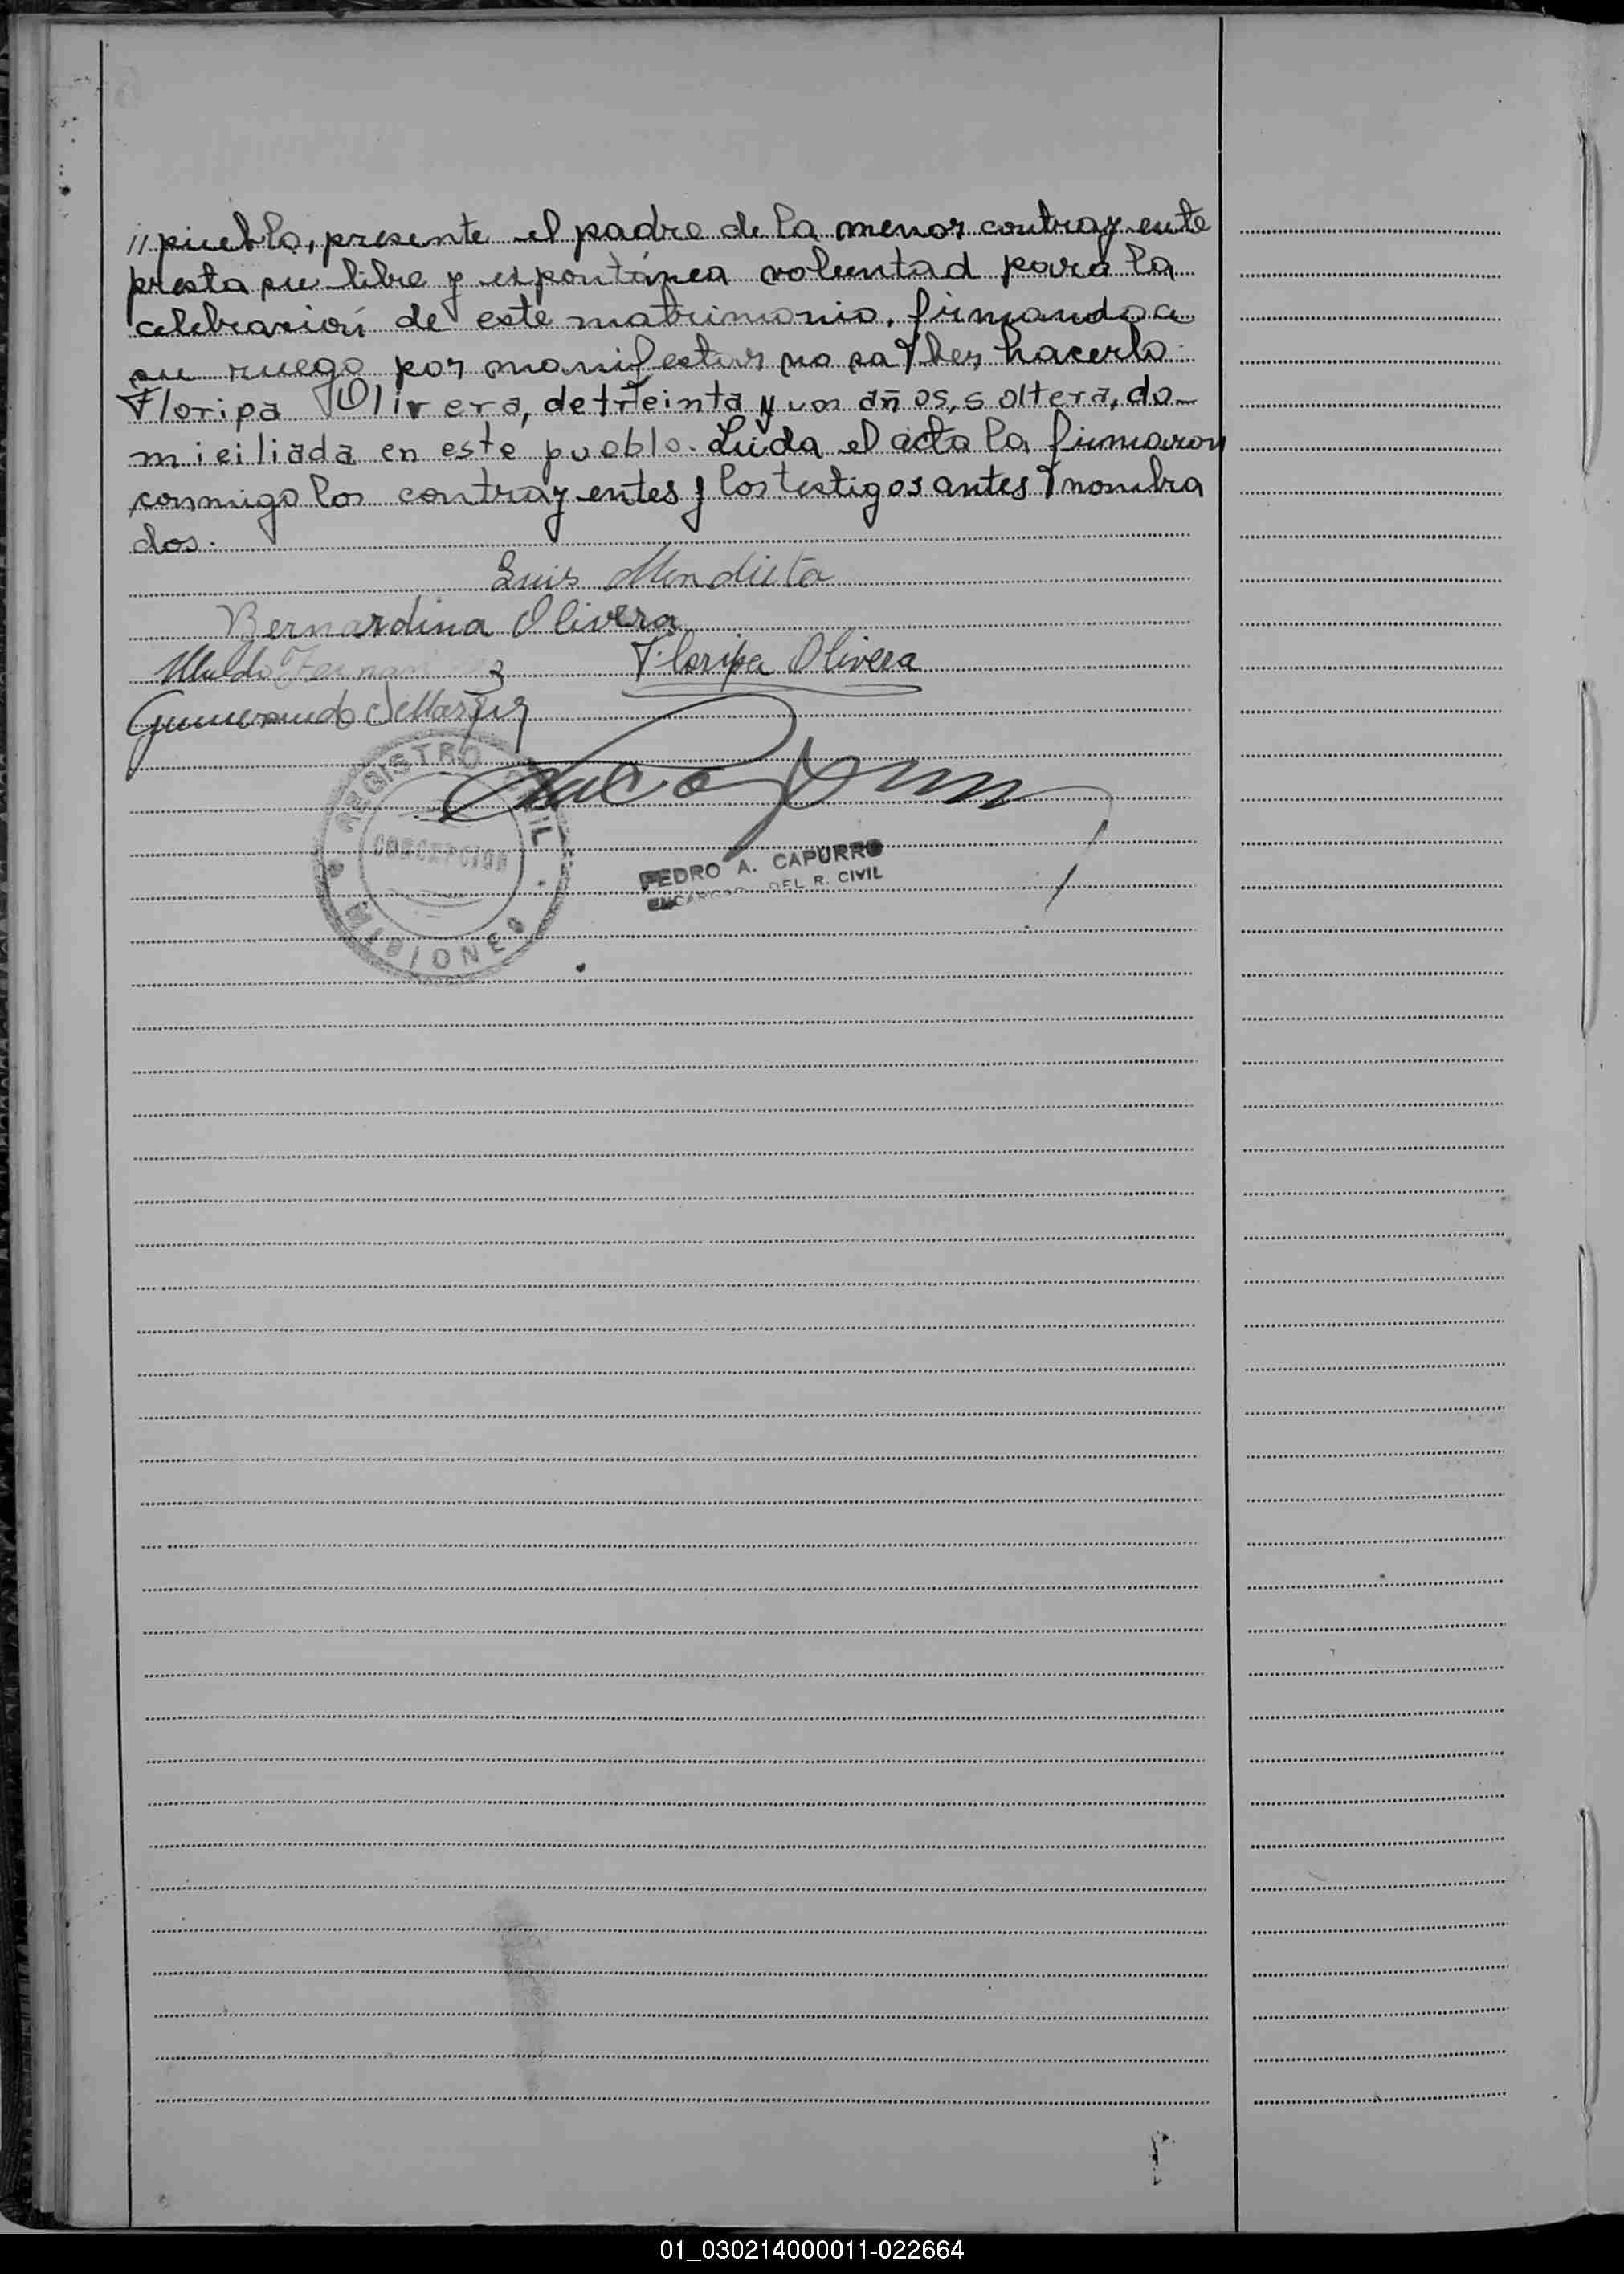 // pueblo, presente el padre de la menor contrayente
presta su libre y espontánea voluntad para la
celebración de este matrimonio, firmando a
su ruego por manifestar no saber hacerlo
Floripa Olivera, de treinta y un años, soltera, do-
miciliada en este pueblo. Leída el acta la firmaron
conmigo los contrayentes y los testigos antes nombra
dos.
Luis Mendieta
Bernardina Olivera
Floripa Olivera
REGISTRO CIVIL
CONCEPCION
MISIONES
PEDRO A. CAPURRO
ENCARGADO DEL R. CIVIL
01_030214000011-022664